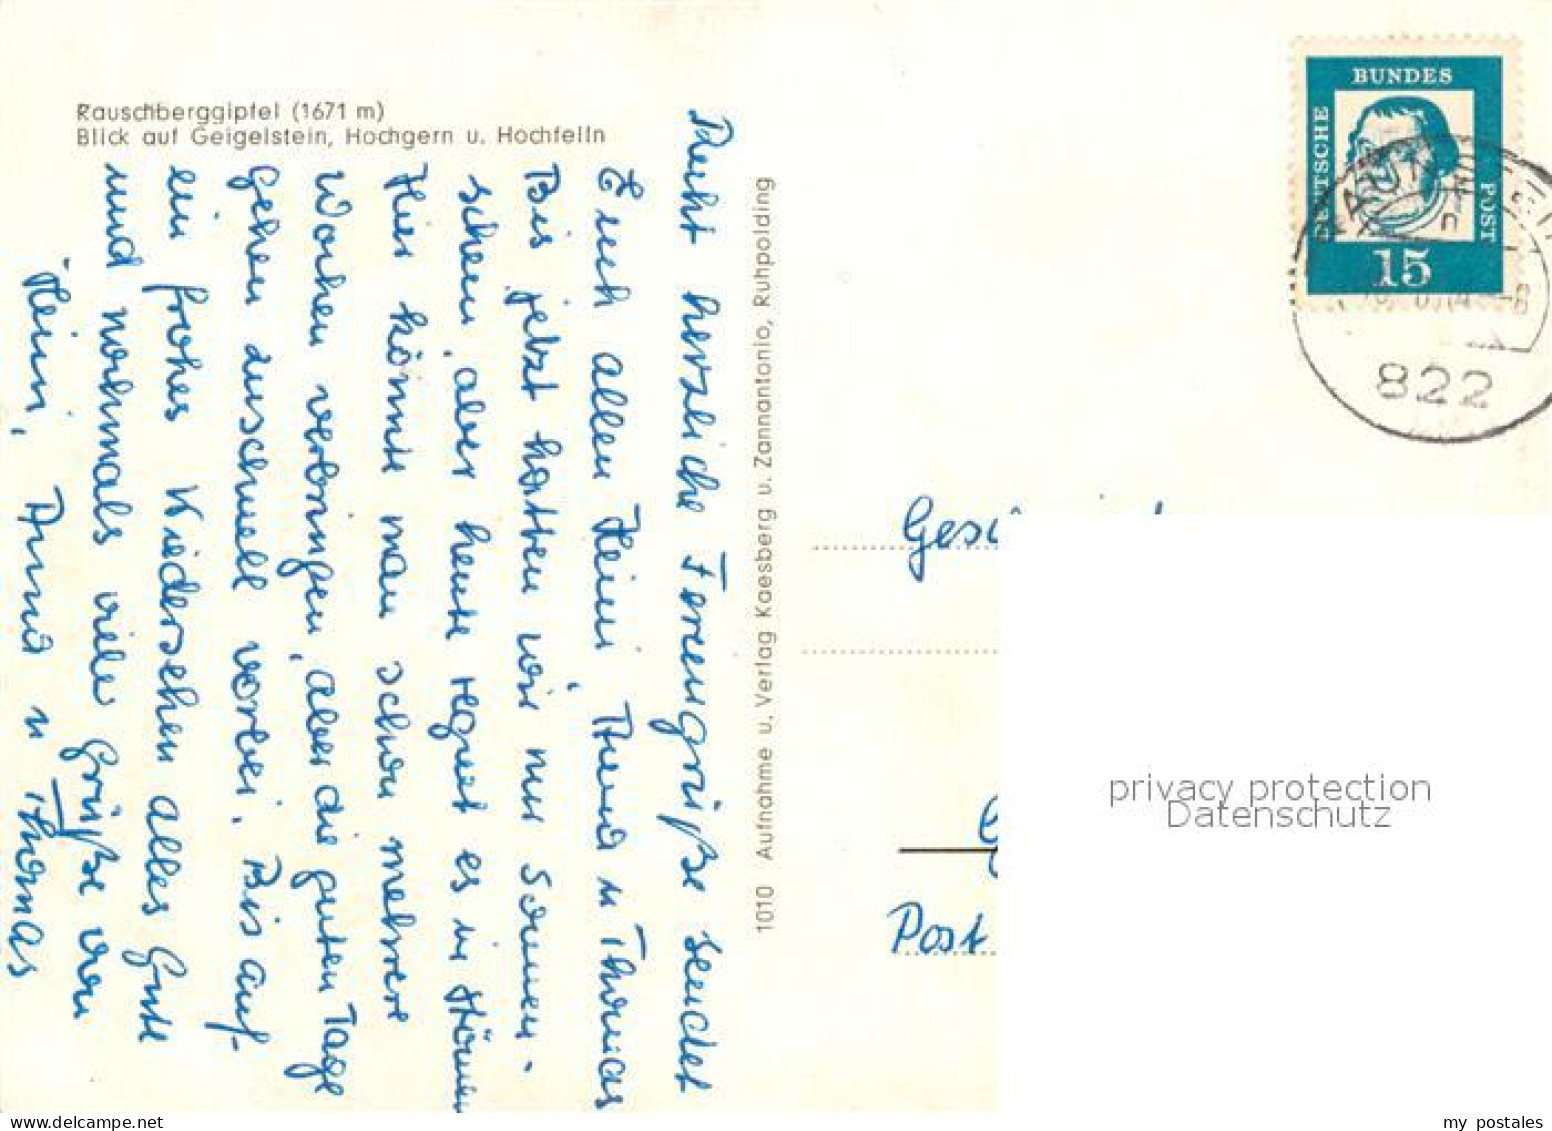 Rauschberggipfel (1671 m)
Blick auf Geigelstein, Hochgern u. Hochfelln
Recht herzliche Feriengrüße sendet
Euch allen Heini, Annid u Thomas
Bis jetzt hatten wir nur Sonnen-
schein, aber heute regnet es in Strömen
Hier könnte man schon mehrere
Wochen verbringen, aber die guten Tage
gehen zuschnell vorbei. Bis auf
ein frohes Wiedersehen alles Gute
und nochmals viele Grüße von
Heini, u Thomas
1010 Aufnahme u. Verlag Kaesberg u. Zannantonio, Ruhpolding
DEUTSCHE
BUNDES
POST
15
822
Post
privacy protection
Datenschutz
my postales